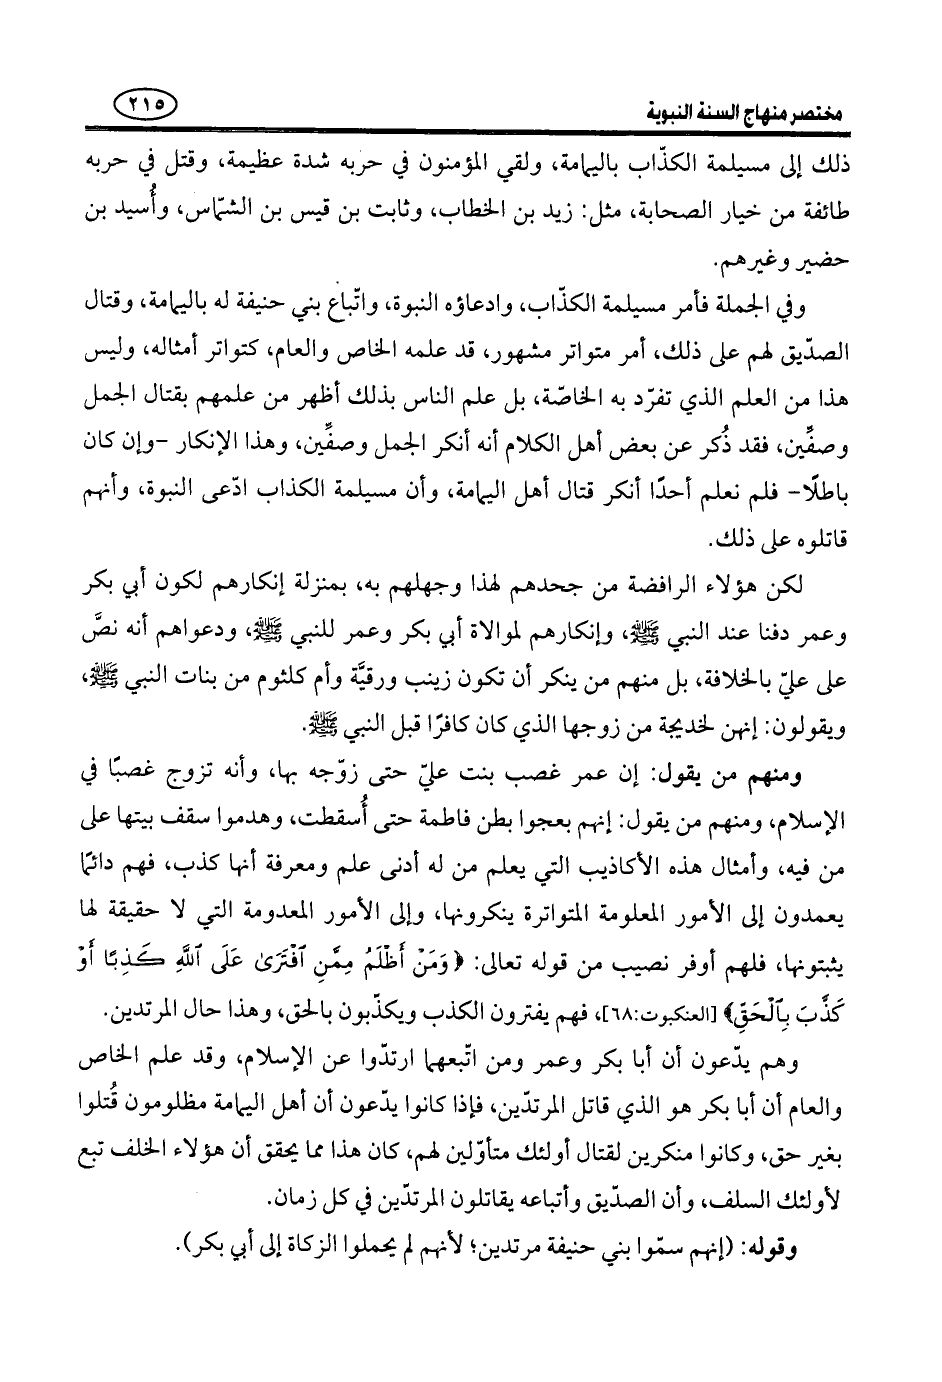 مختصر منهاج السنة النبوية
٢١٥
ذلك إلى مسيلمة الكذّاب باليمامة، ولقي المؤمنون في حربه شدة عظيمة، وقتل في حربه
طائفة من خيار الصحابة، مثل: زيد بن الخطاب، وثابت بن قيس بن الشمّاس، وأُسيد بن
حضير وغيرهم.
وفي الجملة فأمر مسيلمة الكذّاب، وادعاؤه النبوة، واتّباع بني حنيفة له باليمامة، وقتال
الصدّيق لهم على ذلك، أمر متواتر مشهور، قد علمه الخاص والعام، كتواتر أمثاله، وليس
هذا من العلم الذي تفرّد به الخاصّة، بل علم الناس بذلك أظهر من علمهم بقتال الجمل
وصفِّين، فقد ذُكر عن بعض أهل الكلام أنه أنكر الجمل وصفِّين، وهذا الإنكار -وإن كان
باطلًا- فلم نعلم أحدًا أنكر قتال أهل اليمامة، وأن مسيلمة الكذاب ادّعى النبوة، وأنهم
قاتلوه على ذلك.
لكن هؤلاء الرافضة من جحدهم لهذا وجهلهم به، بمنزلة إنكارهم لكون أبي بكر
وعمر دفنا عند النبي ﷺ، وإنكارهم لموالاة أبي بكر وعمر للنبي ﷺ، ودعواهم أنه نصَّ
على عليّ بالخلافة، بل منهم من ينكر أن تكون زينب ورقيَّة وأم كلثوم من بنات النبي ﷺ،
ويقولون: إنهن لخديجة من زوجها الذي كان كافرًا قبل النبي ﷺ.
ومنهم من يقول: إن عمر غصب بنت عليّ حتى زوّجه بها، وأنه تزوج غصبًا في
الإسلام، ومنهم من يقول: إنهم بعجوا بطن فاطمة حتى أُسقطت، وهدموا سقف بيتها على
من فيه، وأمثال هذه الأكاذيب التي يعلم من له أدنى علم ومعرفة أنها كذب، فهم دائمًا
يعمدون إلى الأمور المعلومة المتواترة ينكرونها، وإلى الأمور المعدومة التي لا حقيقة لها
يثبتونها، فلهم أوفر نصيب من قوله تعالى: ﴿وَمَنۡ أَظۡلَمُ مِمَّنِ ٱفۡتَرَىٰ عَلَى ٱللَّهِ كَذِبًا أَوۡ
كَذَّبَ بِٱلۡحَقِّ﴾ [العنكبوت:٦٨]، فهم يفترون الكذب ويكذّبون بالحق، وهذا حال المرتدين.
وهم يدّعون أن أبا بكر وعمر ومن اتّبعهما ارتدّوا عن الإسلام، وقد علم الخاص
والعام أن أبا بكر هو الذي قاتل المرتدّين، فإذا كانوا يدّعون أن أهل اليمامة مظلومون قُتلوا
بغير حق، وكانوا منكرين لقتال أولئك متأوّلين لهم، كان هذا مما يحقق أن هؤلاء الخلف تبع
لأولئك السلف، وأن الصدّيق وأتباعه يقاتلون المرتدّين في كل زمان.
وقوله: (إنهم سمّوا بني حنيفة مرتدين؛ لأنهم لم يحملوا الزكاة إلى أبي بكر).